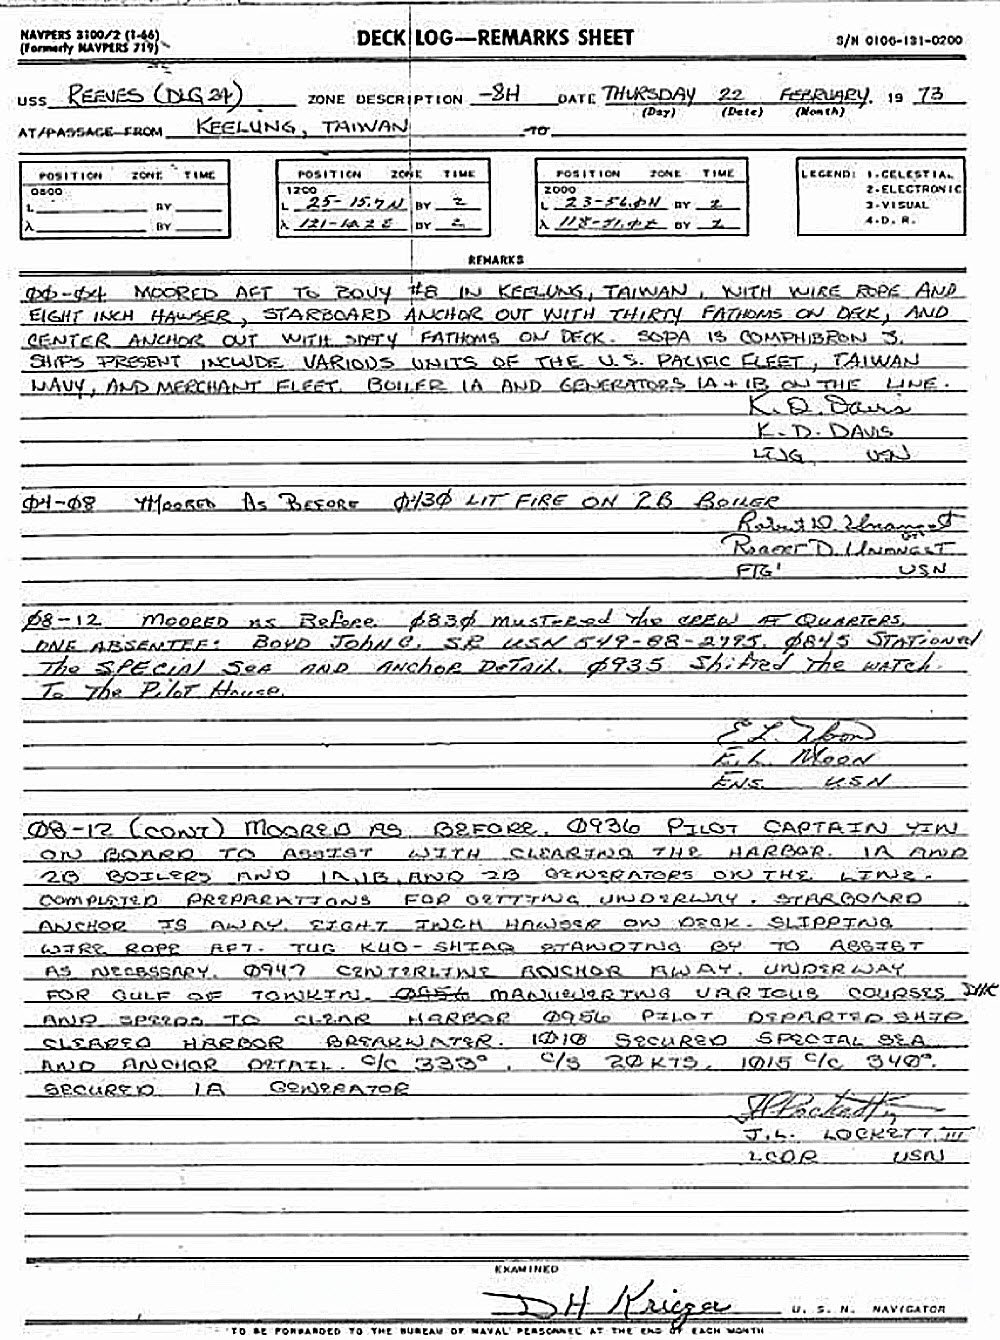 NAVPERS 3100/2 (1-66)
(Formerly NAVPERS 719)
DECK LOG—REMARKS SHEET
S/N 0106-131-0200
USS REEVES (DLG 24) ZONE DESCRIPTION -8H DATE THURSDAY 22 FEBRUARY 19 73
(Day) (Date) (Month)
AT/PASSAGE FROM KEELUNG, TAIWAN TO
POSITION ZONE TIME
0800
L BY
λ BY
POSITION ZONE TIME
1200
L 25-15.7N BY 2
λ BY 2
POSITION ZONE TIME
2000
L 23-56.0N BY 2
λ BY 2
LEGEND: 1-CELESTIAL
2-ELECTRONIC
3-VISUAL
4-D. R.
REMARKS
00-04 MOORED AFT TO BOUY #8 IN KEELUNG, TAIWAN, WITH WIRE ROPE AND
EIGHT INCH HAWSER, STARBOARD ANCHOR OUT WITH THIRTY FATHOMS ON DECK, AND
CENTER ANCHOR OUT WITH SIXTY FATHOMS ON DECK. SOPA IS COMPHIBRON 3.
SHIPS PRESENT INCLUDE VARIOUS UNITS OF THE U.S. PACIFIC FLEET, TAIWAN
NAVY, AND MERCHANT FLEET. BOILER 1A AND GENERATORS 1A + 1B ON THE LINE.
K. D. Davis
K. D. DAVIS
LTJG USN
04-08 MOORED AS BEFORE 0430 LIT FIRE ON 2B BOILER
Robert D. Unangst
ROBERT D. UNANGST
FTG1 USN
08-12 MOORED as Before. 0830 mustered the CREW AT QUARTERS,
ONE ABSENTEE: BOYD JOHN C. SR USN 549-88-2795. 0845 STATIONED
The SPECIAL SEA AND ANCHOR DETAIL. 0935 Shifted The WATCH
To The Pilot House.
E L Moon
E. L. MOON
ENS. USN
08-12 (CONT) MOORED AS BEFORE. 0936 PILOT CAPTAIN YIN
ON BOARD TO ASSIST WITH CLEARING THE HARBOR. 1A AND
2B BOILERS AND 1A, 1B, AND 2B GENERATORS ON THE LINE.
COMPLETED PREPARATIONS FOR GETTING UNDERWAY. STARBOARD
ANCHOR IS AWAY. EIGHT INCH HAWSER ON DECK. SLIPPING
WIRE ROPE AFT. TUG KUO-SHIAG STANDING BY TO ASSIST
AS NECESSARY. 0947 CENTERLINE ANCHOR AWAY. UNDERWAY
FOR GULF OF TONKIN. 0956 MANUEVERING VARIOUS COURSES
AND SPEEDS TO CLEAR HARBOR 0956 PILOT DEPARTED SHIP.
CLEARED HARBOR BREAKWATER. 1010 SECURED SPECIAL SEA
AND ANCHOR DETAIL. C/C 333°, C/S 20 KTS. 1015 C/C 340°.
SECURED 1A GENERATOR
J. L. LOCKETT III
LCDR USN
EXAMINED
D H Krieger U. S. N. NAVIGATOR
TO BE FORWARDED TO THE BUREAU OF NAVAL PERSONNEL AT THE END OF EACH MONTH